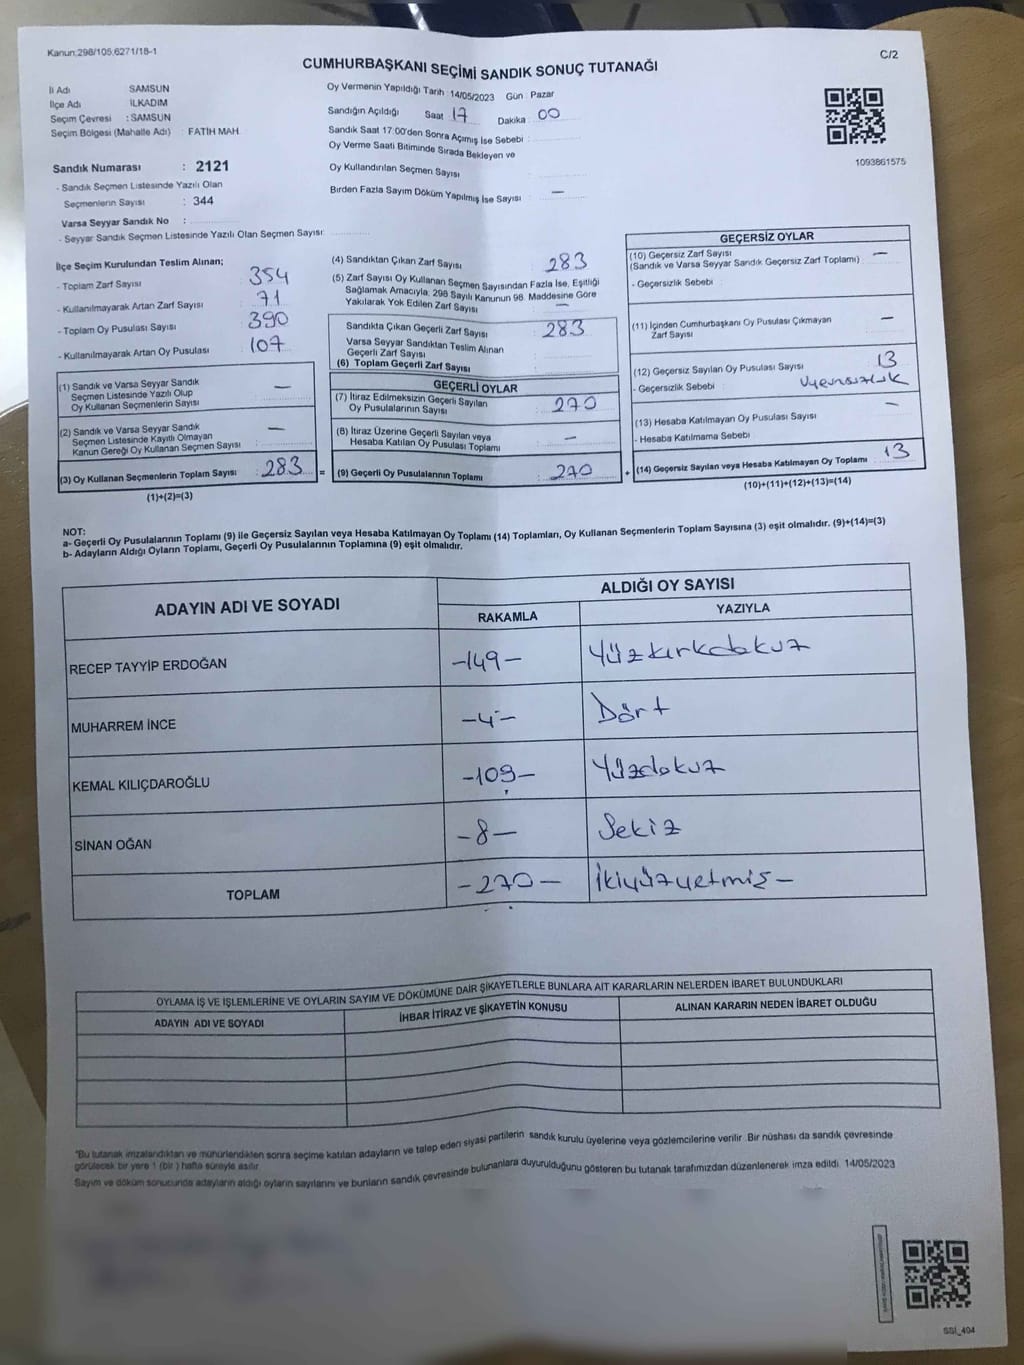 Kanun:298/105,6271/18-1
C/2
CUMHURBAŞKANI SEÇİMİ SANDIK SONUÇ TUTANAĞI
İl Adı SAMSUN
İlçe Adı İLKADIM
Seçim Çevresi : SAMSUN
Seçim Bölgesi (Mahalle Adı) : FATİH MAH.
Oy Vermenin Yapıldığı Tarih : 14/05/2023 Gün : Pazar
Sandığın Açıldığı Saat 17 Dakika 00
Sandık Saat 17:00'den Sonra Açımış İse Sebebi :
Oy Verme Saati Bitiminde Sırada Bekleyen ve
Oy Kullandırılan Seçmen Sayısı
Birden Fazla Sayım Döküm Yapılmış İse Sayısı : —
1093861575
Sandık Numarası : 2121
- Sandık Seçmen Listesinde Yazılı Olan
Seçmenlerin Sayısı : 344
Varsa Seyyar Sandık No :
- Seyyar Sandık Seçmen Listesinde Yazılı Olan Seçmen Sayısı:
İlçe Seçim Kurulundan Teslim Alınan;
- Toplam Zarf Sayısı : 354
- Kullanılmayarak Artan Zarf Sayısı : 71
- Toplam Oy Pusulası Sayısı : 390
- Kullanılmayarak Artan Oy Pusulası : 107
(1) Sandık ve Varsa Seyyar Sandık
Seçmen Listesinde Yazılı Olup
Oy Kullanan Seçmenlerin Sayısı : —
(2) Sandık ve Varsa Seyyar Sandık
Seçmen Listesinde Kayıtlı Olmayan
Kanun Gereği Oy Kullanan Seçmen Sayısı : —
(3) Oy Kullanan Seçmenlerin Toplam Sayısı : 283 =
(1)+(2)=(3)
(4) Sandıktan Çıkan Zarf Sayısı : 283
(5) Zarf Sayısı Oy Kullanan Seçmen Sayısından Fazla İse, Eşitliği
Sağlamak Amacıyla; 298 Sayılı Kanunun 98. Maddesine Göre
Yakılarak Yok Edilen Zarf Sayısı : —
Sandıkta Çıkan Geçerli Zarf Sayısı : 283
Varsa Seyyar Sandıktan Teslim Alınan
Geçerli Zarf Sayısı
(6) Toplam Geçerli Zarf Sayısı
GEÇERLİ OYLAR
(7) İtiraz Edilmeksizin Geçerli Sayılan
Oy Pusulalarının Sayısı : 270
(8) İtiraz Üzerine Geçerli Sayılan veya
Hesaba Katılan Oy Pusulası Toplamı : —
(9) Geçerli Oy Pusulalarının Toplamı : 270 +
GEÇERSİZ OYLAR
(10) Geçersiz Zarf Sayısı : —
(Sandık ve Varsa Seyyar Sandık Geçersiz Zarf Toplamı)
- Geçersizlik Sebebi :
(11) İçinden Cumhurbaşkanı Oy Pusulası Çıkmayan
Zarf Sayısı : —
(12) Geçersiz Sayılan Oy Pusulası Sayısı : 13
- Geçersizlik Sebebi : Uyumsuzluk
(13) Hesaba Katılmayan Oy Pusulası Sayısı : —
- Hesaba Katılmama Sebebi
(14) Geçersiz Sayılan veya Hesaba Katılmayan Oy Toplamı : 13
(10)+(11)+(12)+(13)=(14)
NOT:
a- Geçerli Oy Pusulalarının Toplamı (9) ile Geçersiz Sayılan veya Hesaba Katılmayan Oy Toplamı (14) Toplamları, Oy Kullanan Seçmenlerin Toplam Sayısına (3) eşit olmalıdır. (9)+(14)=(3)
b- Adayların Aldığı Oyların Toplamı, Geçerli Oy Pusulalarının Toplamına (9) eşit olmalıdır.
ADAYIN ADI VE SOYADI
ALDIĞI OY SAYISI
RAKAMLA YAZIYLA
RECEP TAYYİP ERDOĞAN -149- Yüzkırkdokuz
MUHARREM İNCE -4- Dört
KEMAL KILIÇDAROĞLU -109- Yüzdokuz
SİNAN OĞAN -8- Sekiz
TOPLAM -270- İkiyüzyetmiş-
OYLAMA İŞ VE İŞLEMLERİNE VE OYLARIN SAYIM VE DÖKÜMÜNE DAİR ŞİKAYETLERLE BUNLARA AİT KARARLARIN NELERDEN İBARET BULUNDUKLARI
ADAYIN ADI VE SOYADI İHBAR İTİRAZ VE ŞİKAYETİN KONUSU ALINAN KARARIN NEDEN İBARET OLDUĞU
"Bu tutanak imzalandıktan ve mühürlendikten sonra seçime katılan adayların ve talep eden siyasi partilerin sandık kurulu üyelerine veya gözlemcilerine verilir. Bir nüshası da sandık çevresinde
görülecek bir yere 1 (bir ) hafta süreyle asılır.
Sayım ve döküm sonucunda adayların aldığı oyların sayılarını ve bunların sandık çevresinde bulunanlara duyurulduğunu gösteren bu tutanak tarafımızdan düzenlenerek imza edildi. 14/05/2023
SSİ_404